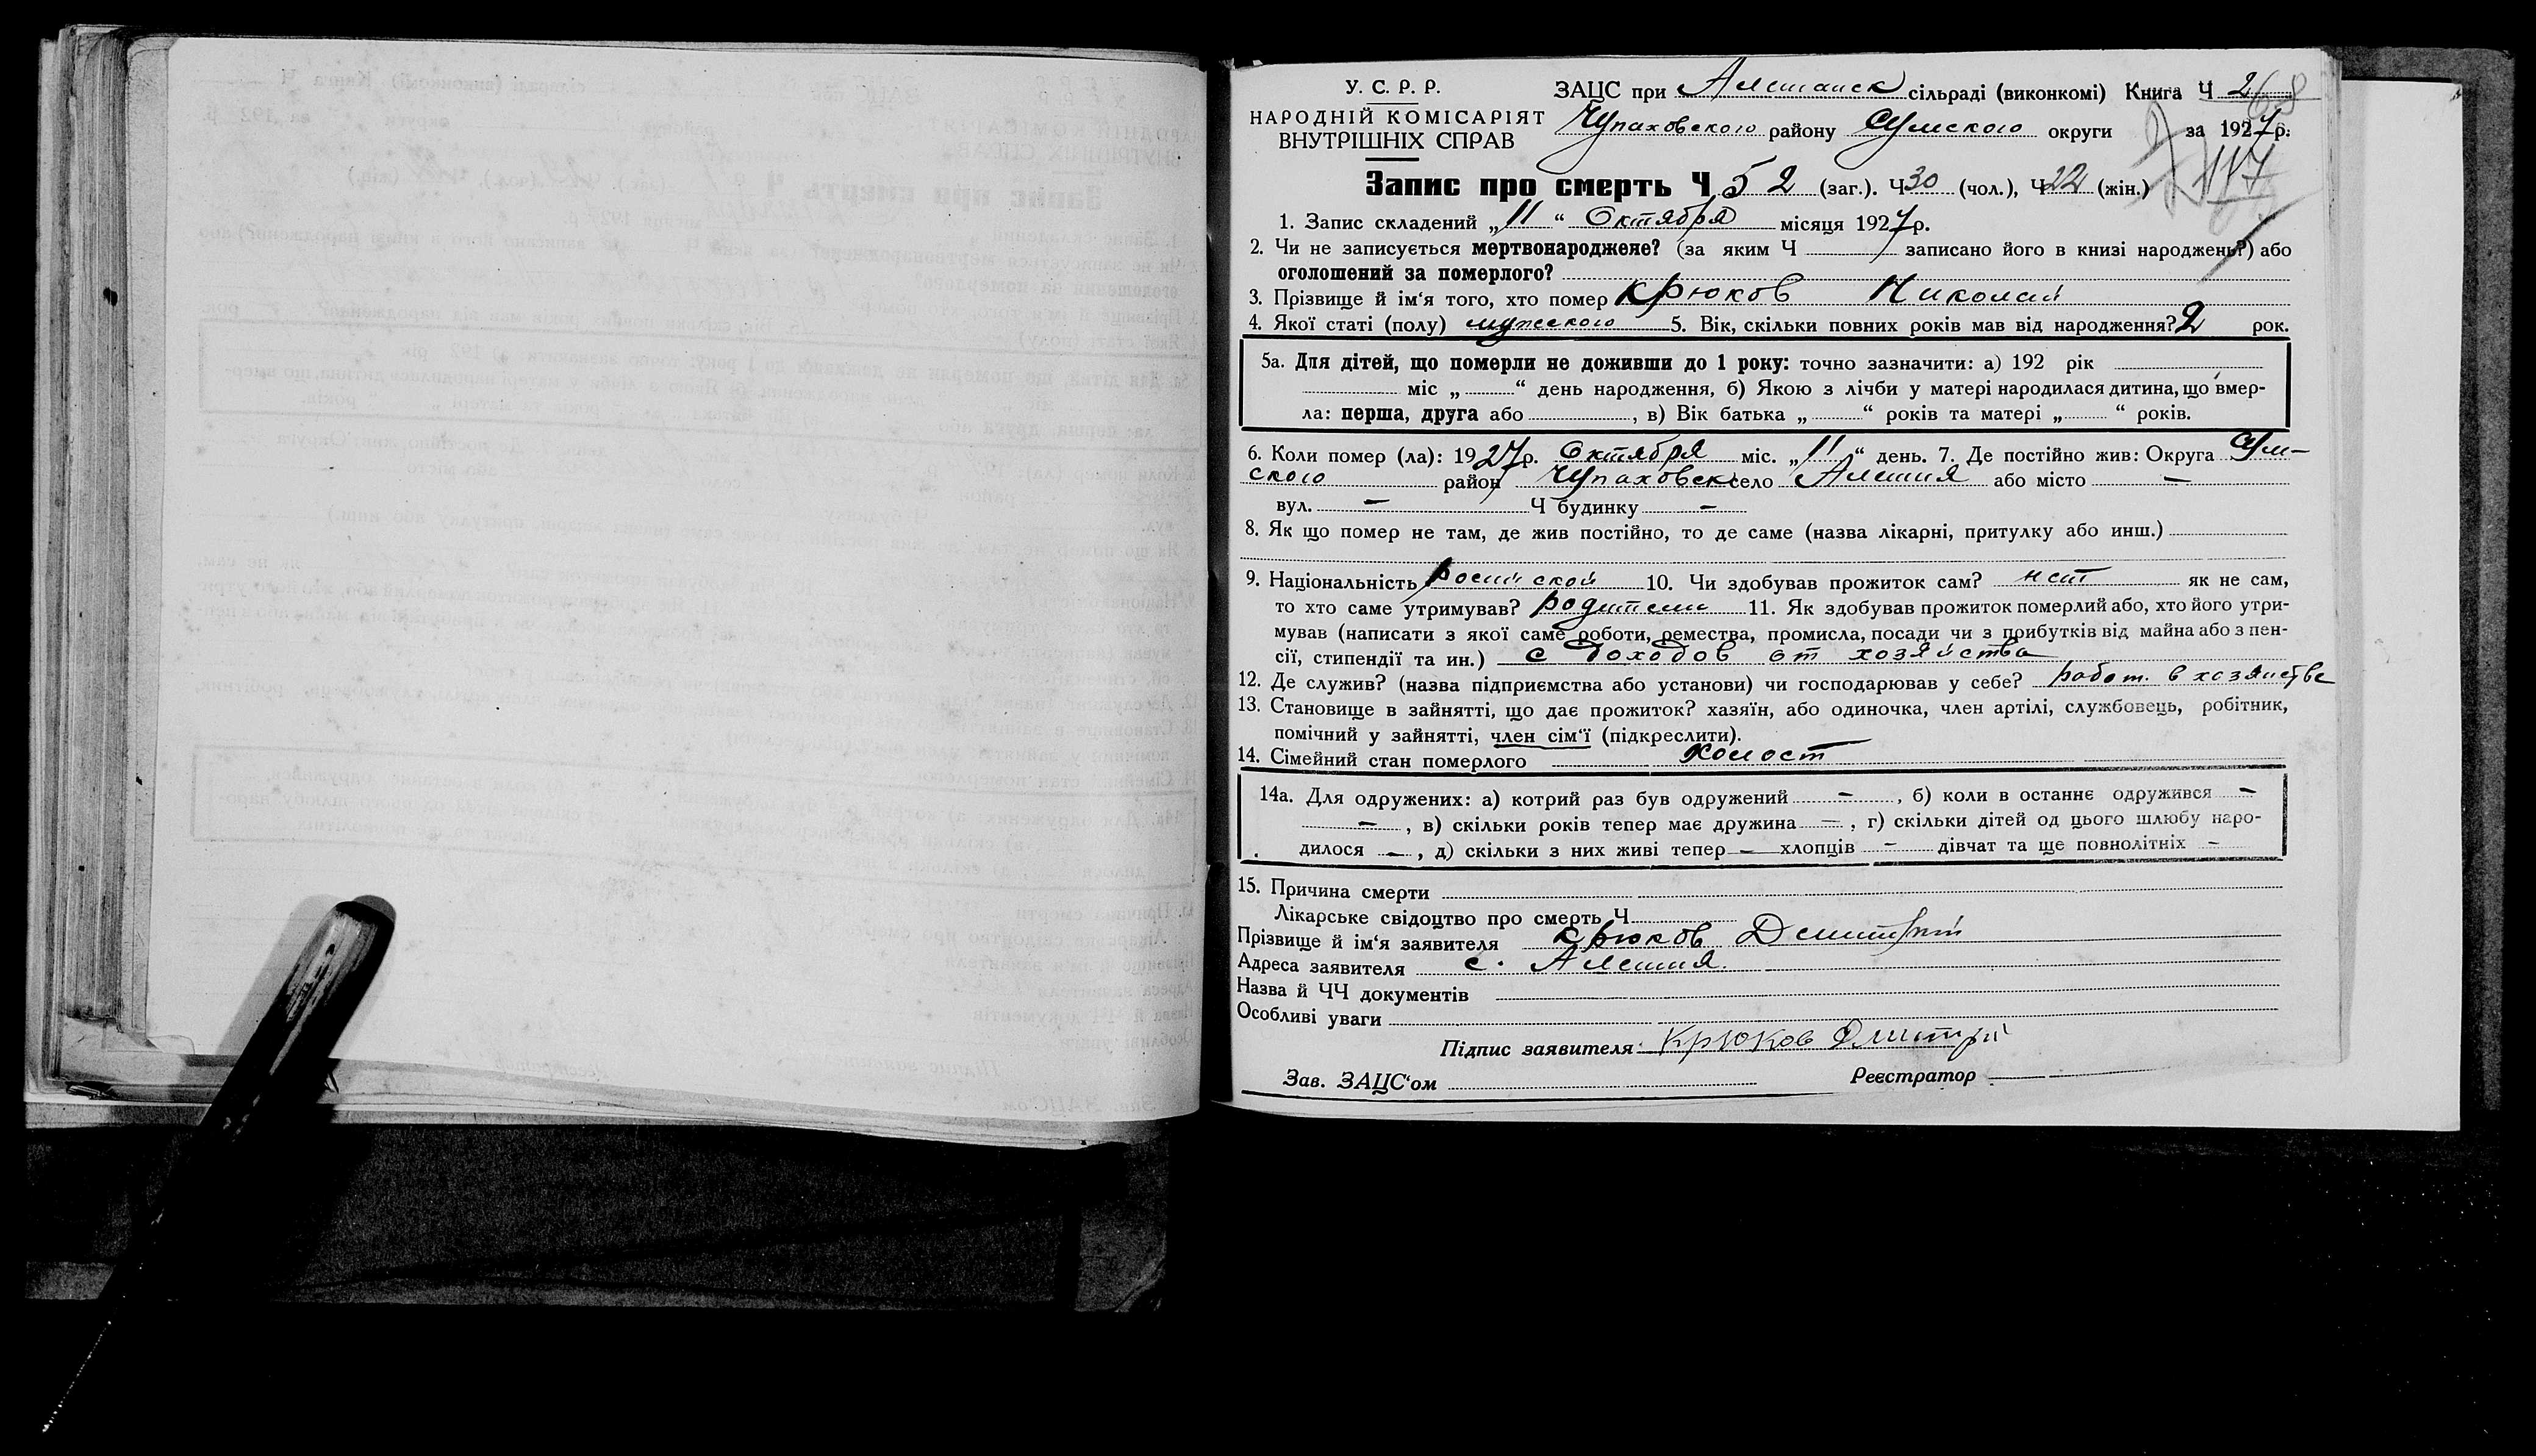 У. С. Р. Р.
НАРОДНІЙ КОМІСАРІЯТ
ВНУТРІШНІХ СПРАВ
ЗАЦС при Алешанск сільраді (виконкомі) Книга Ч 2
Чупаховского району Сумского округи за 1927р.
268
117
Запис про смерть Ч 52 (заг.). Ч 30 (чол.), Ч 22 (жін.)
1. Запис складений „11“ Октября місяця 1927р.
2. Чи не записується мертвонароджене? (за яким Ч записано його в книзі народжень?) або
оголошений за померлого?
3. Прізвище й ім‘я того, хто помер Крюков Николай
4. Якої статі (полу) мужского 5. Вік, скільки повних років мав від народження? 2 рок.
5а. Для дітей, що померли не доживши до 1 року: точно зазначити: а) 192 рік
міс „ “ день народження, б) Якою з лічби у матері народилася дитина, що вмер-
ла: перша, друга або , в) Вік батька „ “ років та матері „ “ років.
6. Коли помер (ла): 1927р. Октября міс. „11“ день. 7. Де постійно жив: Округа Сум-
ского район Чупаховск село Алешня або місто —
вул. — Ч будинку —
8. Як що помер не там, де жив постійно, то де саме (назва лікарні, притулку або инш.)
9. Національність росийской 10. Чи здобував прожиток сам? нет як не сам,
то хто саме утримував? родители 11. Як здобував прожиток померлий або, хто його утри-
мував (написати з якої саме роботи, ремества, промисла, посади чи з прибутків від майна або з пен-
сії, стипендії та ин.) с доходов от хозяйства
12. Де служив? (назва підприємства або установи) чи господарював у себе? работ. в хозяистве
13. Становище в зайнятті, що дає прожиток? хазяїн, або одиночка, член артілі, службовець, робітник,
помічний у зайнятті, член сім‘ї (підкреслити).
14. Сімейний стан померлого холост
14а. Для одружених: а) котрий раз був одружений — , б) коли в останнє одружився —
— , в) скільки років тепер має дружина — , г) скільки дітей од цього шлюбу наро-
дилося — , д) скільки з них живі тепер — хлопців — дівчат та ще повнолітніх —
15. Причина смерти
Лікарське свідоцтво про смерть Ч
Прізвище й ім‘я заявителя Крюков Демитрий
Адреса заявителя с. Алешня
Назва й ЧЧ документів
Особливі уваги
Підпис заявителя Крюков Дмитрий
Зав. ЗАЦС‘ом Реєстратор